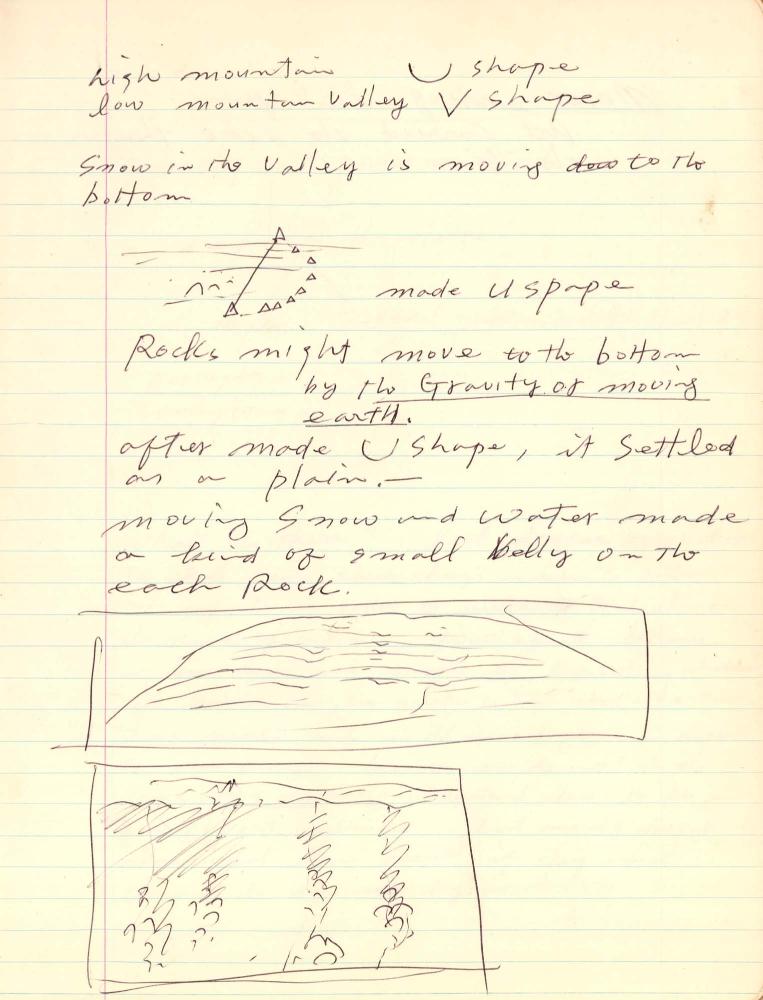 high mountain U shape
low mountain Valley V shape
Snow in the Valley is moving to the
bottom
made U spape
Rocks might move to the bottom
by the Gravity of moving
earth.
after made U shape, it settled
as a plain.—
moving Snow and Water made
a kind of small Velly on the
each Rock.